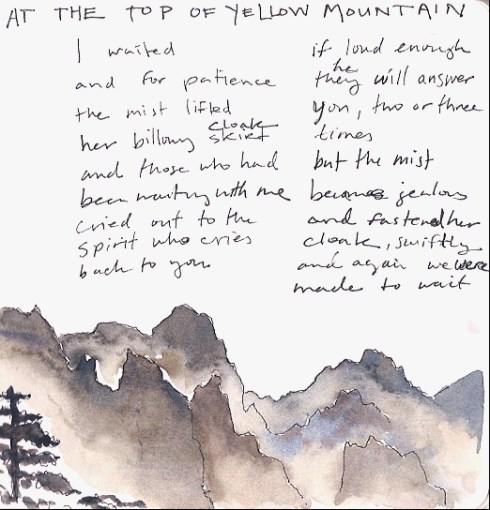 AT THE TOP OF YELLOW MOUNTAIN
I waited
and for patience
the mist lifted
her billowy skirt cloak
and those who had
been waiting with me
cried out to the
spirit who cries
back to you
if loud enough
they he will answer
you, two or three
times
but the mist
becomes jealous
and fastened her
cloak, swiftly
and again we were
made to wait